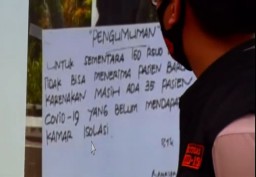 "PENGUMUMAN"
UNTUK SEMENTARA IGD RSUD
TIDAK BISA MENERIMA PASIEN BARU
KARENAKAN MASIH ADA 35 PASIEN
COVID-19 YANG BELUM MENDAPAT
KAMAR ISOLASI